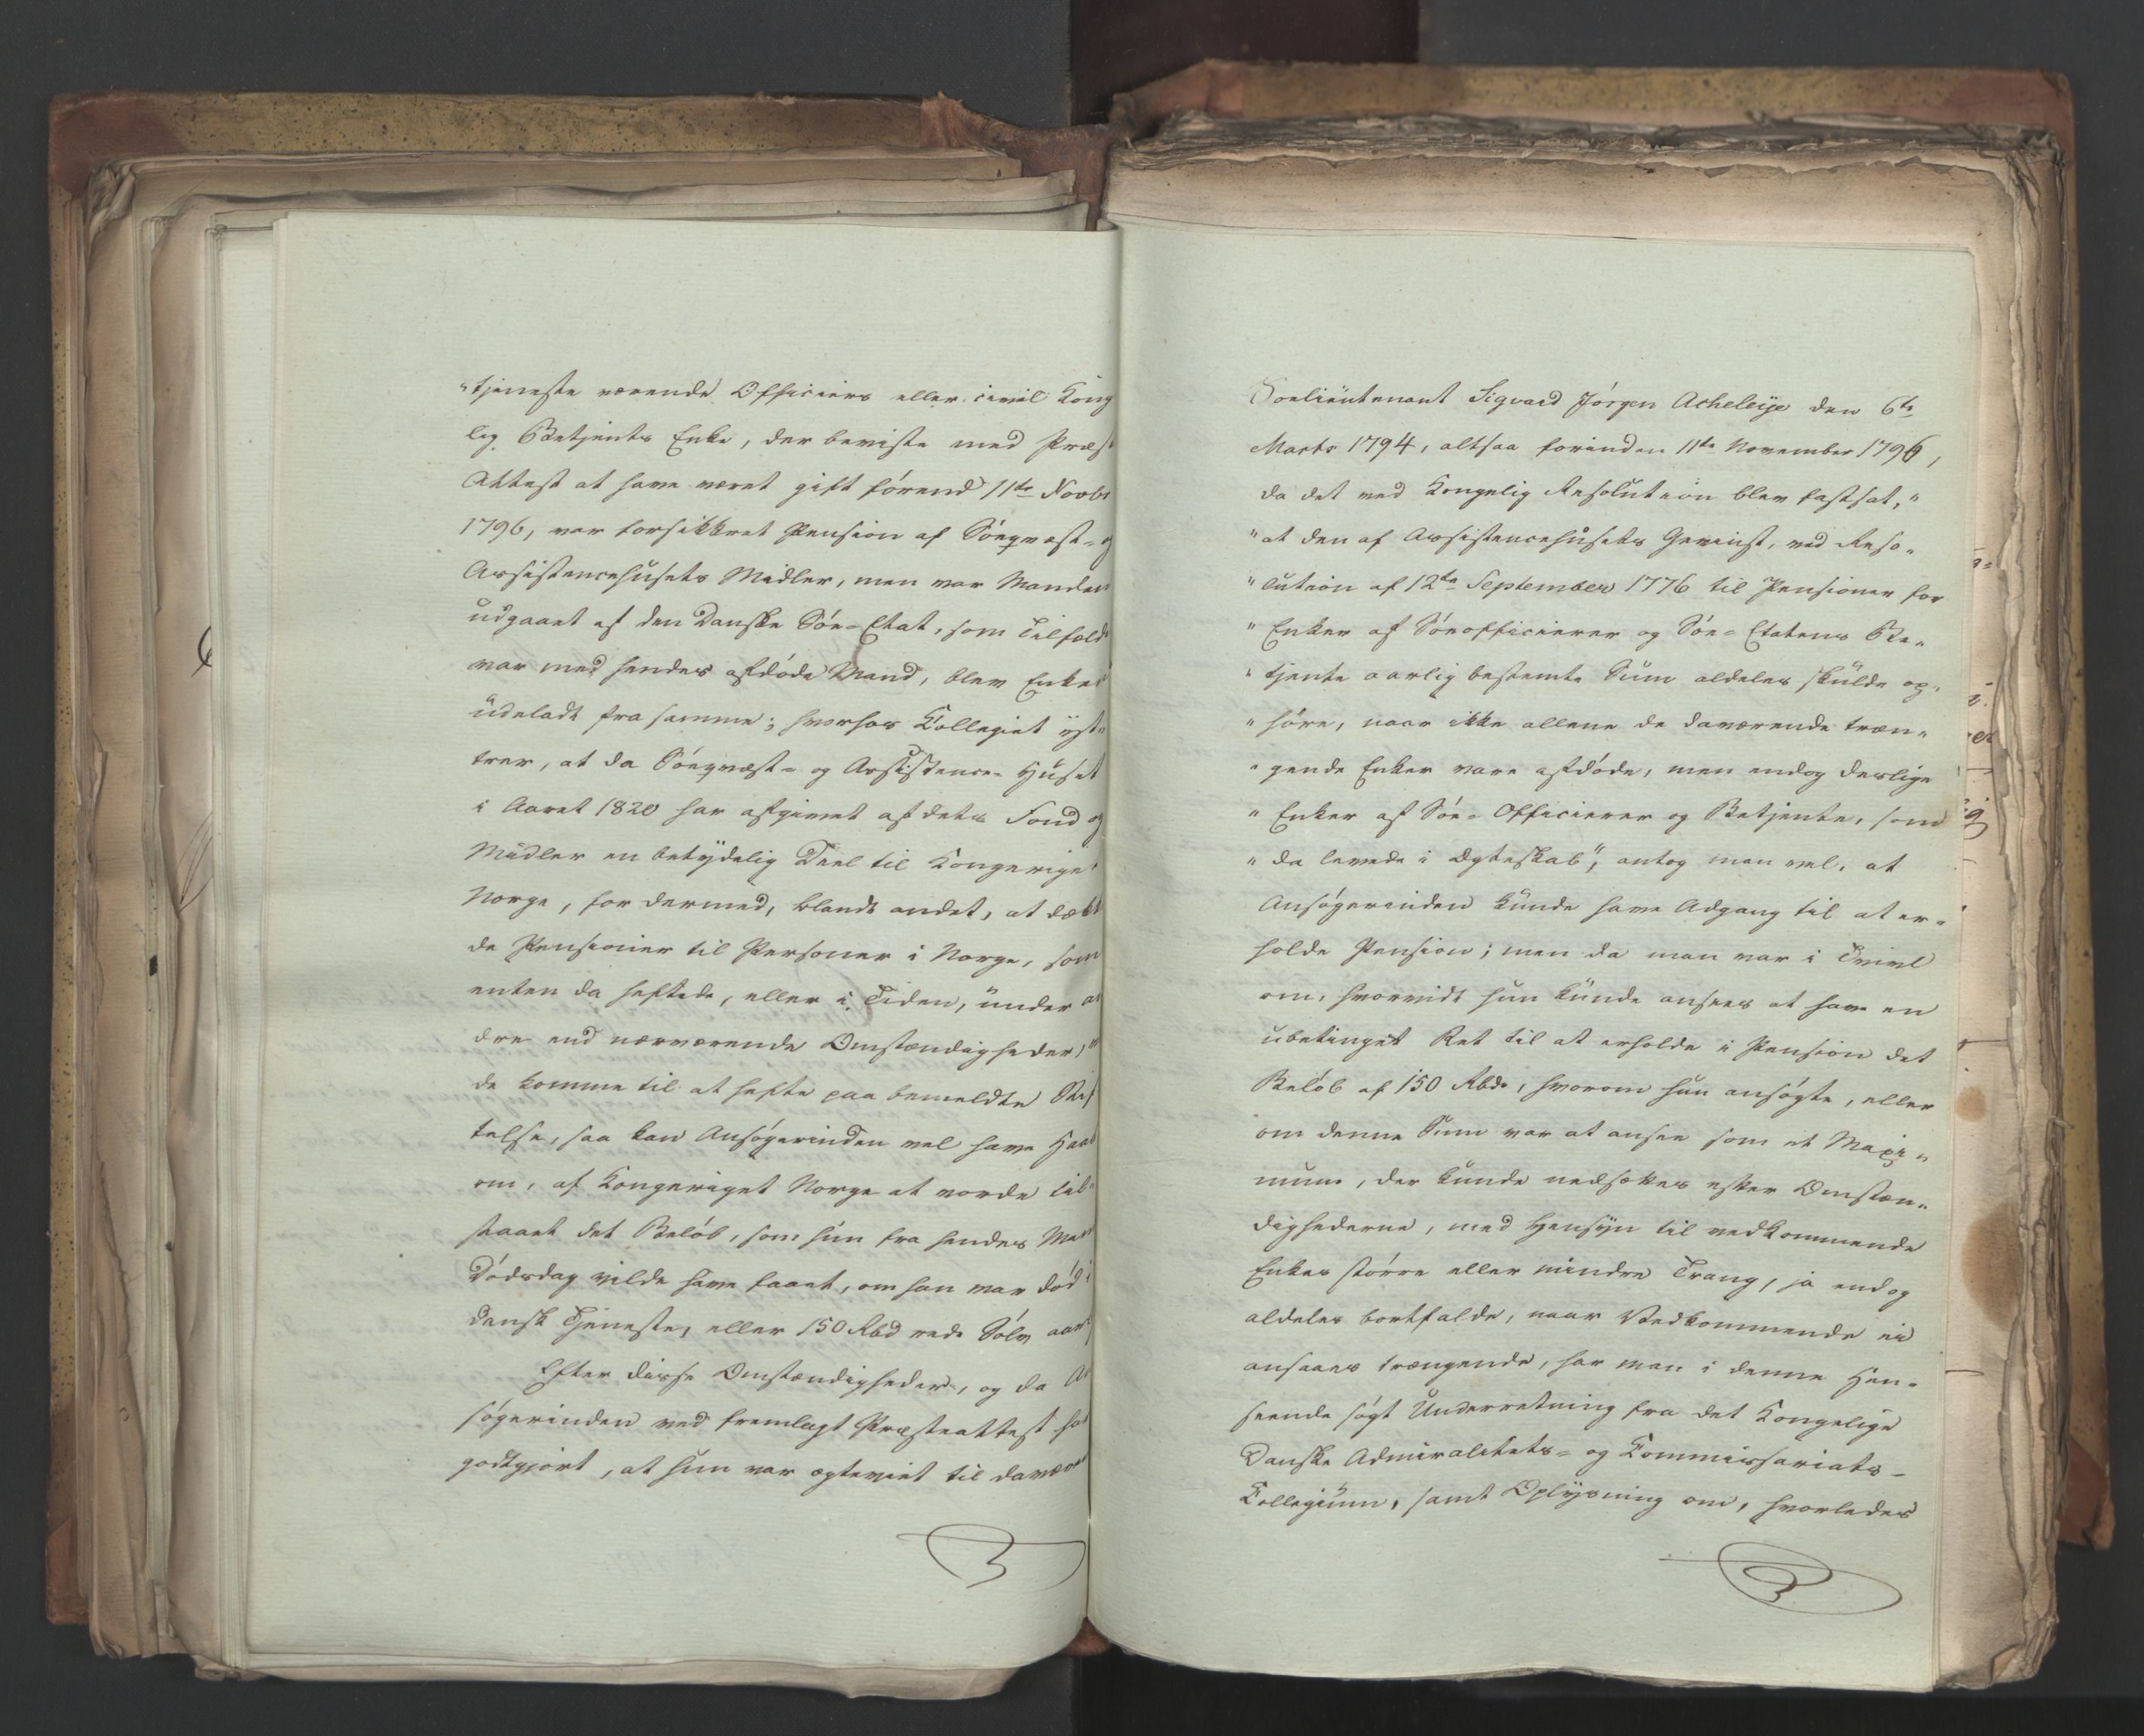 "tjeneste værende Officiers eller civil Kong
lig Betjents Enke, der beviste med Præst
Attest at have været gift förend 11te Novbr
1796, var forsikkret Pension af Söeqvæst- og
Assistencehusets Midler, men var Manden
udgaaet af den Danske Söe-Etat, som Tilfældet
var med hendes afdöde Mand, blev Enken
udeladt fra samme; hvorhos Collegiet ytt-
trer, at da Söeqvæst- og Assistence-Huset
i Aaret 1820 har afgivet af dets Fond og
Midler en betydelig Deel til Kongeriget
Norge, for dermed, blandt andet, at dække
de Pensioner til Personer i Norge, som
enten da heftede, eller i Tiden, under an
dre end nærværende Omstændigheder,
de komme til at hefte paa bemeldte Stif
telse, saa kan Ansögerinden vel have Haab
om, af Kongeriget Norge at vorde til-
staaet det Belöb, som hun fra hendes Mands
Dödsdag vilde have faaet, om han var död i
Dansk Tjeneste, eller 150 Rbd rede Sölv aarl
Efter disse Omstændigheder, og da An
sögerinden ved fremlagt Præsteattest har
godtgjort, at hun var ægteviet til daværende
Soelieutenant Sigvard Jörgen Acheleye den 6te
Marts 1794, altsaa forinden 11te November 1796,
da det ved Kongelig Resolution blev fastsat, "
" at den af Assistencehusets Gevinst, ved Reso-
" lution af 12te September 1776 til Pensioner for
" Enker af Söeofficierer og Söe-Etatens Be-
" tjente aarlig bestemte Sum aldeles skulde op-
" höre, naar ikke allene de daværende træn-
" gende Enker vare afdöde, men endog deslige
" Enker af Söe-Officierer og Betjente, som
" da levede i Ægteskab", antog man vel, at
Ansögerinden kunde have Adgang til at er-
holde Pension; men da man var i Tvivl
om, hvorvidt hun kunde ansees at have en
ubetinget Ret til at erholde i Pension det
Belöb af 150 Rbd, hvorom hun ansögte, eller
om denne Sum var at ansee som et Maxi-
mum, der kunde nedsættes efter Omstæn-
dighederne, med Hensyn til vedkommende
Enkes större eller mindre Trang, ja endog
aldeles bortfalde, naar Vedkommende ei
ansaaes trængende, har man i denne Hen-
seende sögt Underretning fra det Kongelige
Danske Admiralitets- og Commissariats-
Collegium, samt Oplysning om, hvorledes